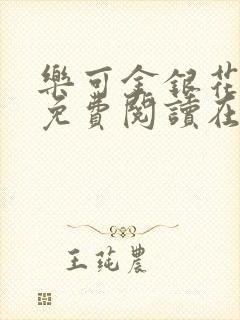 樂可金銀花
免費閱讀在
王莼農